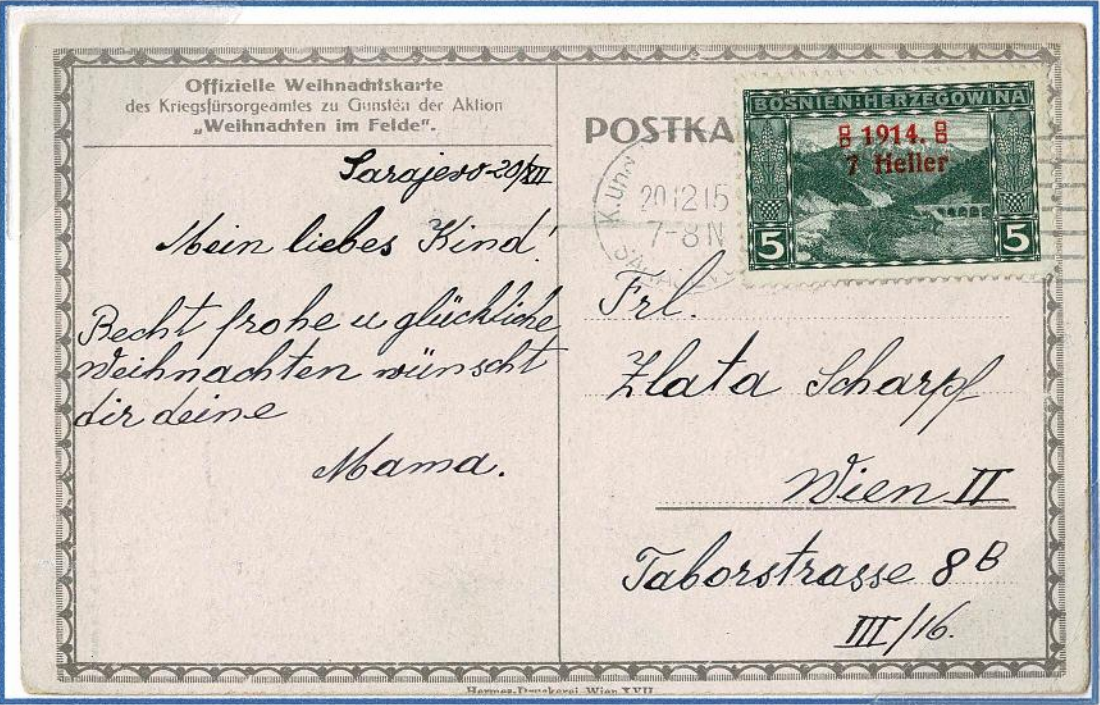 Offizielle Weihnachtskarte
des Kriegsfürsorgeamtes zu Gunsten der Aktion
„Weihnachten im Felde“.
Sarajevo 20/XII
Mein liebes Kind!
Recht frohe u glückliche
Weihnachten wünscht
dir deine
Mama.
POSTKA
BOSNIEN-HERZEGOWINA
1914.
7 Heller
5 5
K.UN.
20 12 15
7-8 N
SARAJEVO
Frl.
Zlata Scharpf
Wien II
Taborstrasse 8B
III/16.
Hermes-Druckerei Wien XVII